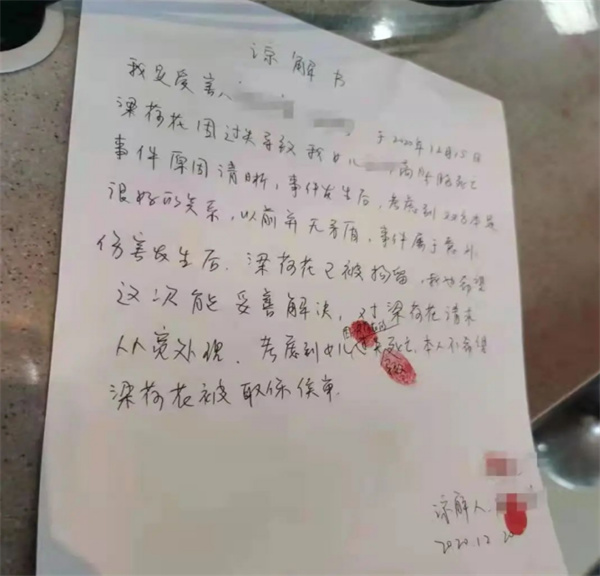 谅解书
我是受害人 于2020年12月15日
梁荷花因过失导致我女儿 死亡
事件原因清晰,事件发生后,考虑到双方本是
很好的关系,以前并无矛盾,事件属于意外
伤害发生后,梁荷花已被拘留,我也希望
这次能妥善解决,对梁荷花请求
从宽处理.考虑到女儿 死亡,本人不希望
梁荷花被取保候审.
谅解人
2020.12.20